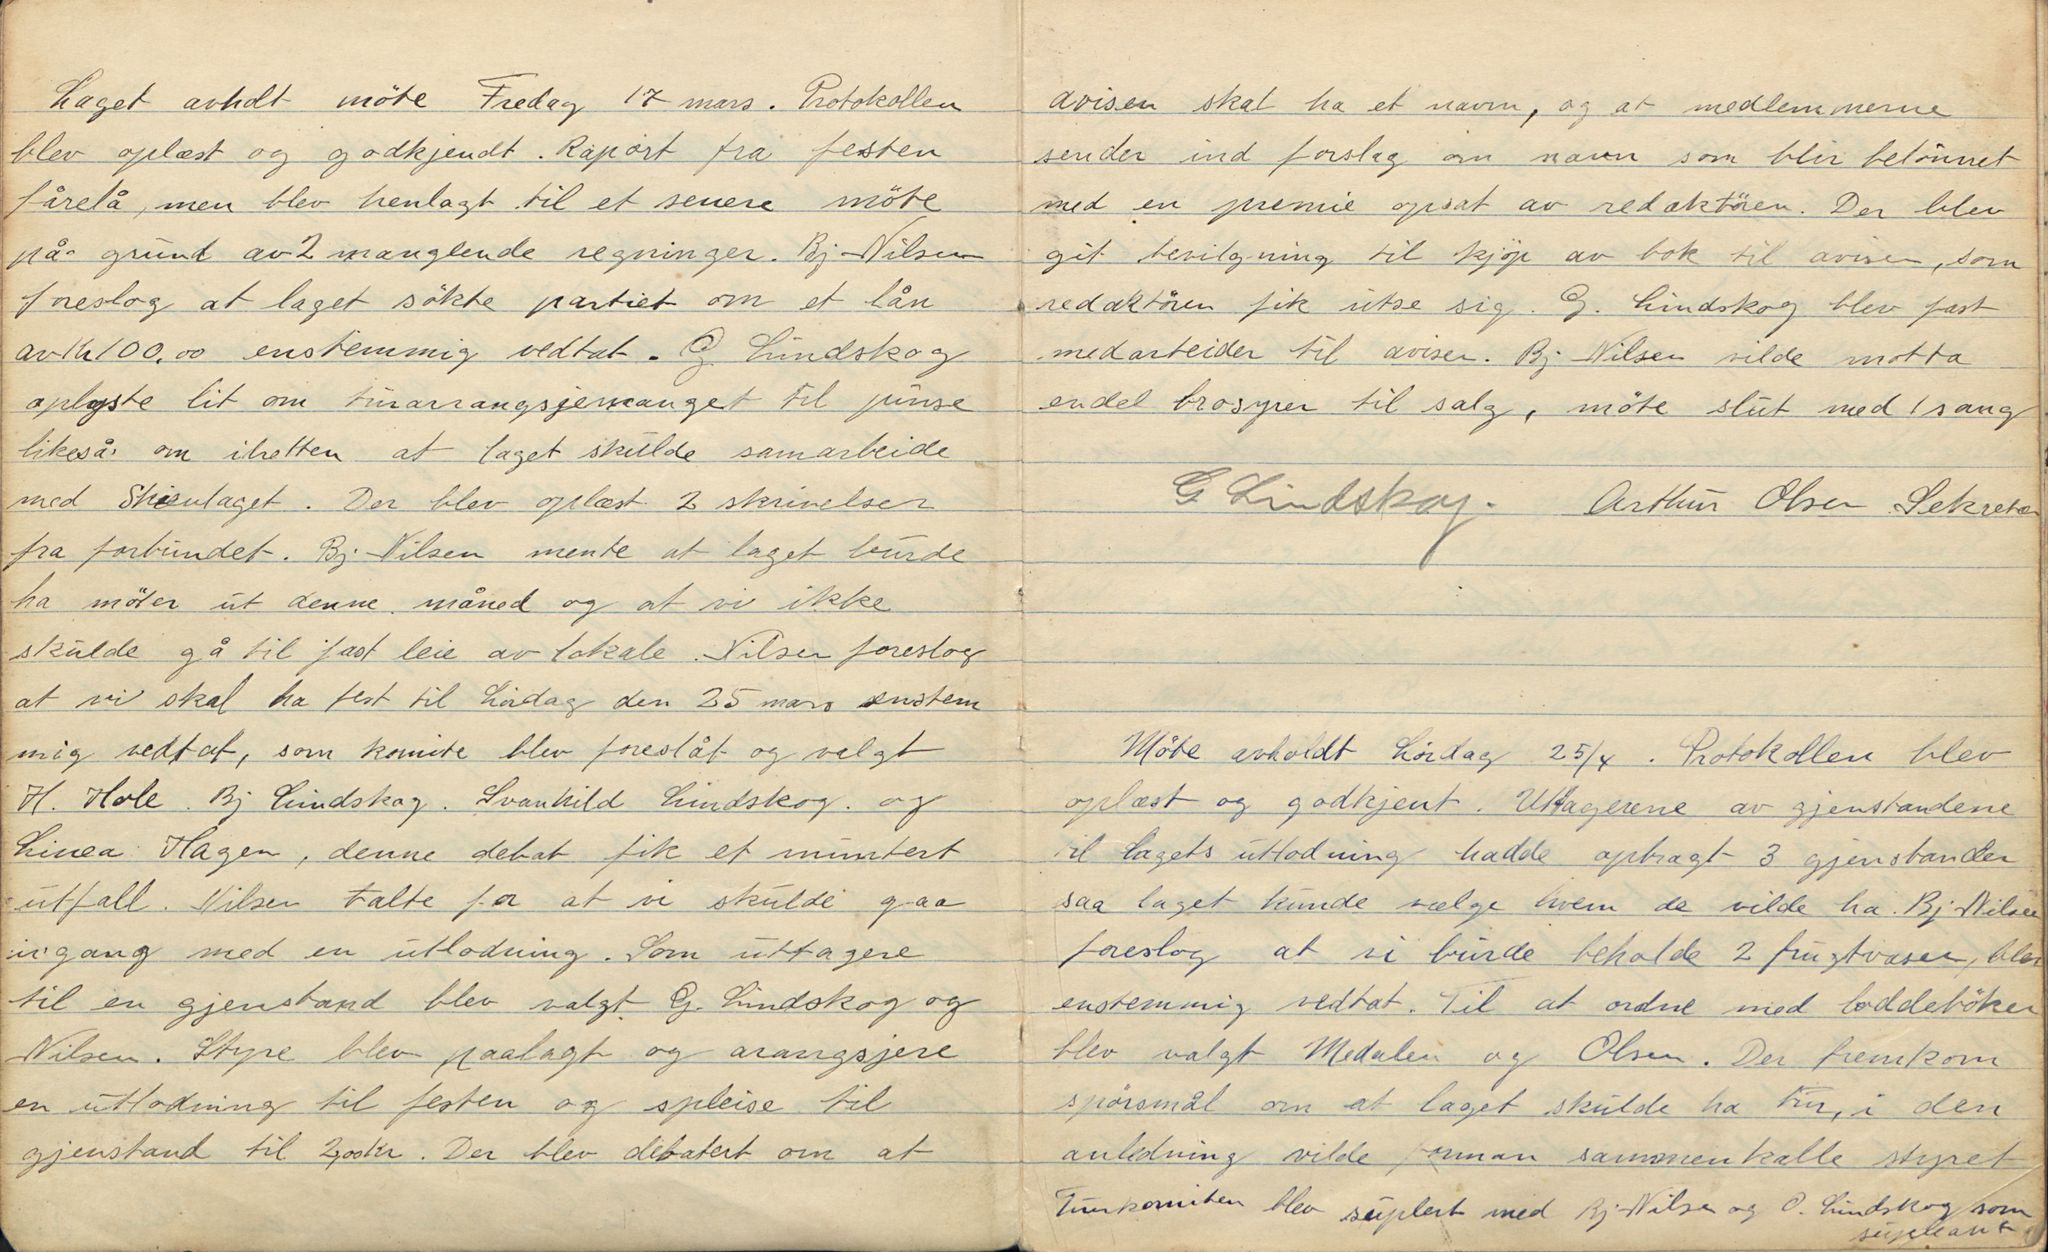 Laget avhdt möte Fredag 17 mars. Protokollen
blev oplæst og godkjendt. Raport fra festen
fårelå, men blev henlagt til et senere möte
på grund av 2 manglende regninger. Bj. Nilsen
foreslog at laget sökte partiet om et lån
av kr 100,00 enstemmig vedtat. G. Lindskog
oplyste lit om turarrangsjemanget til pinse
likeså om idretten at laget skulde samarbeide
med Skienlaget. Der blev oplæst 2 skrivelser
fra forbundet. Bj. Nilsen mente at laget burde
ha möter ut denne måned og at vi ikke
skulde gå til fast leie av lokale. Nilsen foreslog
at vi skal ha fest til Lördag den 25 mars enstem
mig vedtat, som komite blev foreslåt og valgt
H. Hole. Bj Lindskog. Svanhild Lindskog. og
Linea Hagen, denne debat fik et muntert
utfall. Nilsen talte for at vi skulde gaa
igang med en utlodning. Som uttagere
til en gjenstand blev valgt G. Lindskog og
Nilsen. Styre blev paalagt og arangsjere
en utlodning til festen og spleise til
gjenstand til 2,00 kr. Der blev debatert om at
avisen skal ha et navn, og at medlemmerne
sender ind forslag om navn som blir belönnet
med en premie opsat av redaktören. Der blev
git bevilgning til kjöp av bok til avisen, som
redaktören fik utse sig. G. Lindskog blev fast
medarbeider til avisen. Bj. Nilsen vilde motta
endel brosyrer til salg, möte slut med 1 sang
G Lindskog. Arthur Olsen Sekretær
Möte avholdt Lördag 25/4. Protokollen blev
oplæst og godkjent. Uttagerene av gjenstandene
til Lagets utlodning hadde opbragt 3 gjenstander
saa laget kunde vælge hvem de vilde ha. Bj. Nilsen
foreslog at vi burde beholde 2 frugtvaser, blev
enstemmig vedtat. Til at ordne med loddeböker
blev valgt Medalen og Olsen. Der fremkom
spörsmål om at laget skulde ha tur, i den
anledning vilde forman sammenkalle styret
Turkomiten blev suplert med Bj. Nilsen og O. Lindskog som
supleant